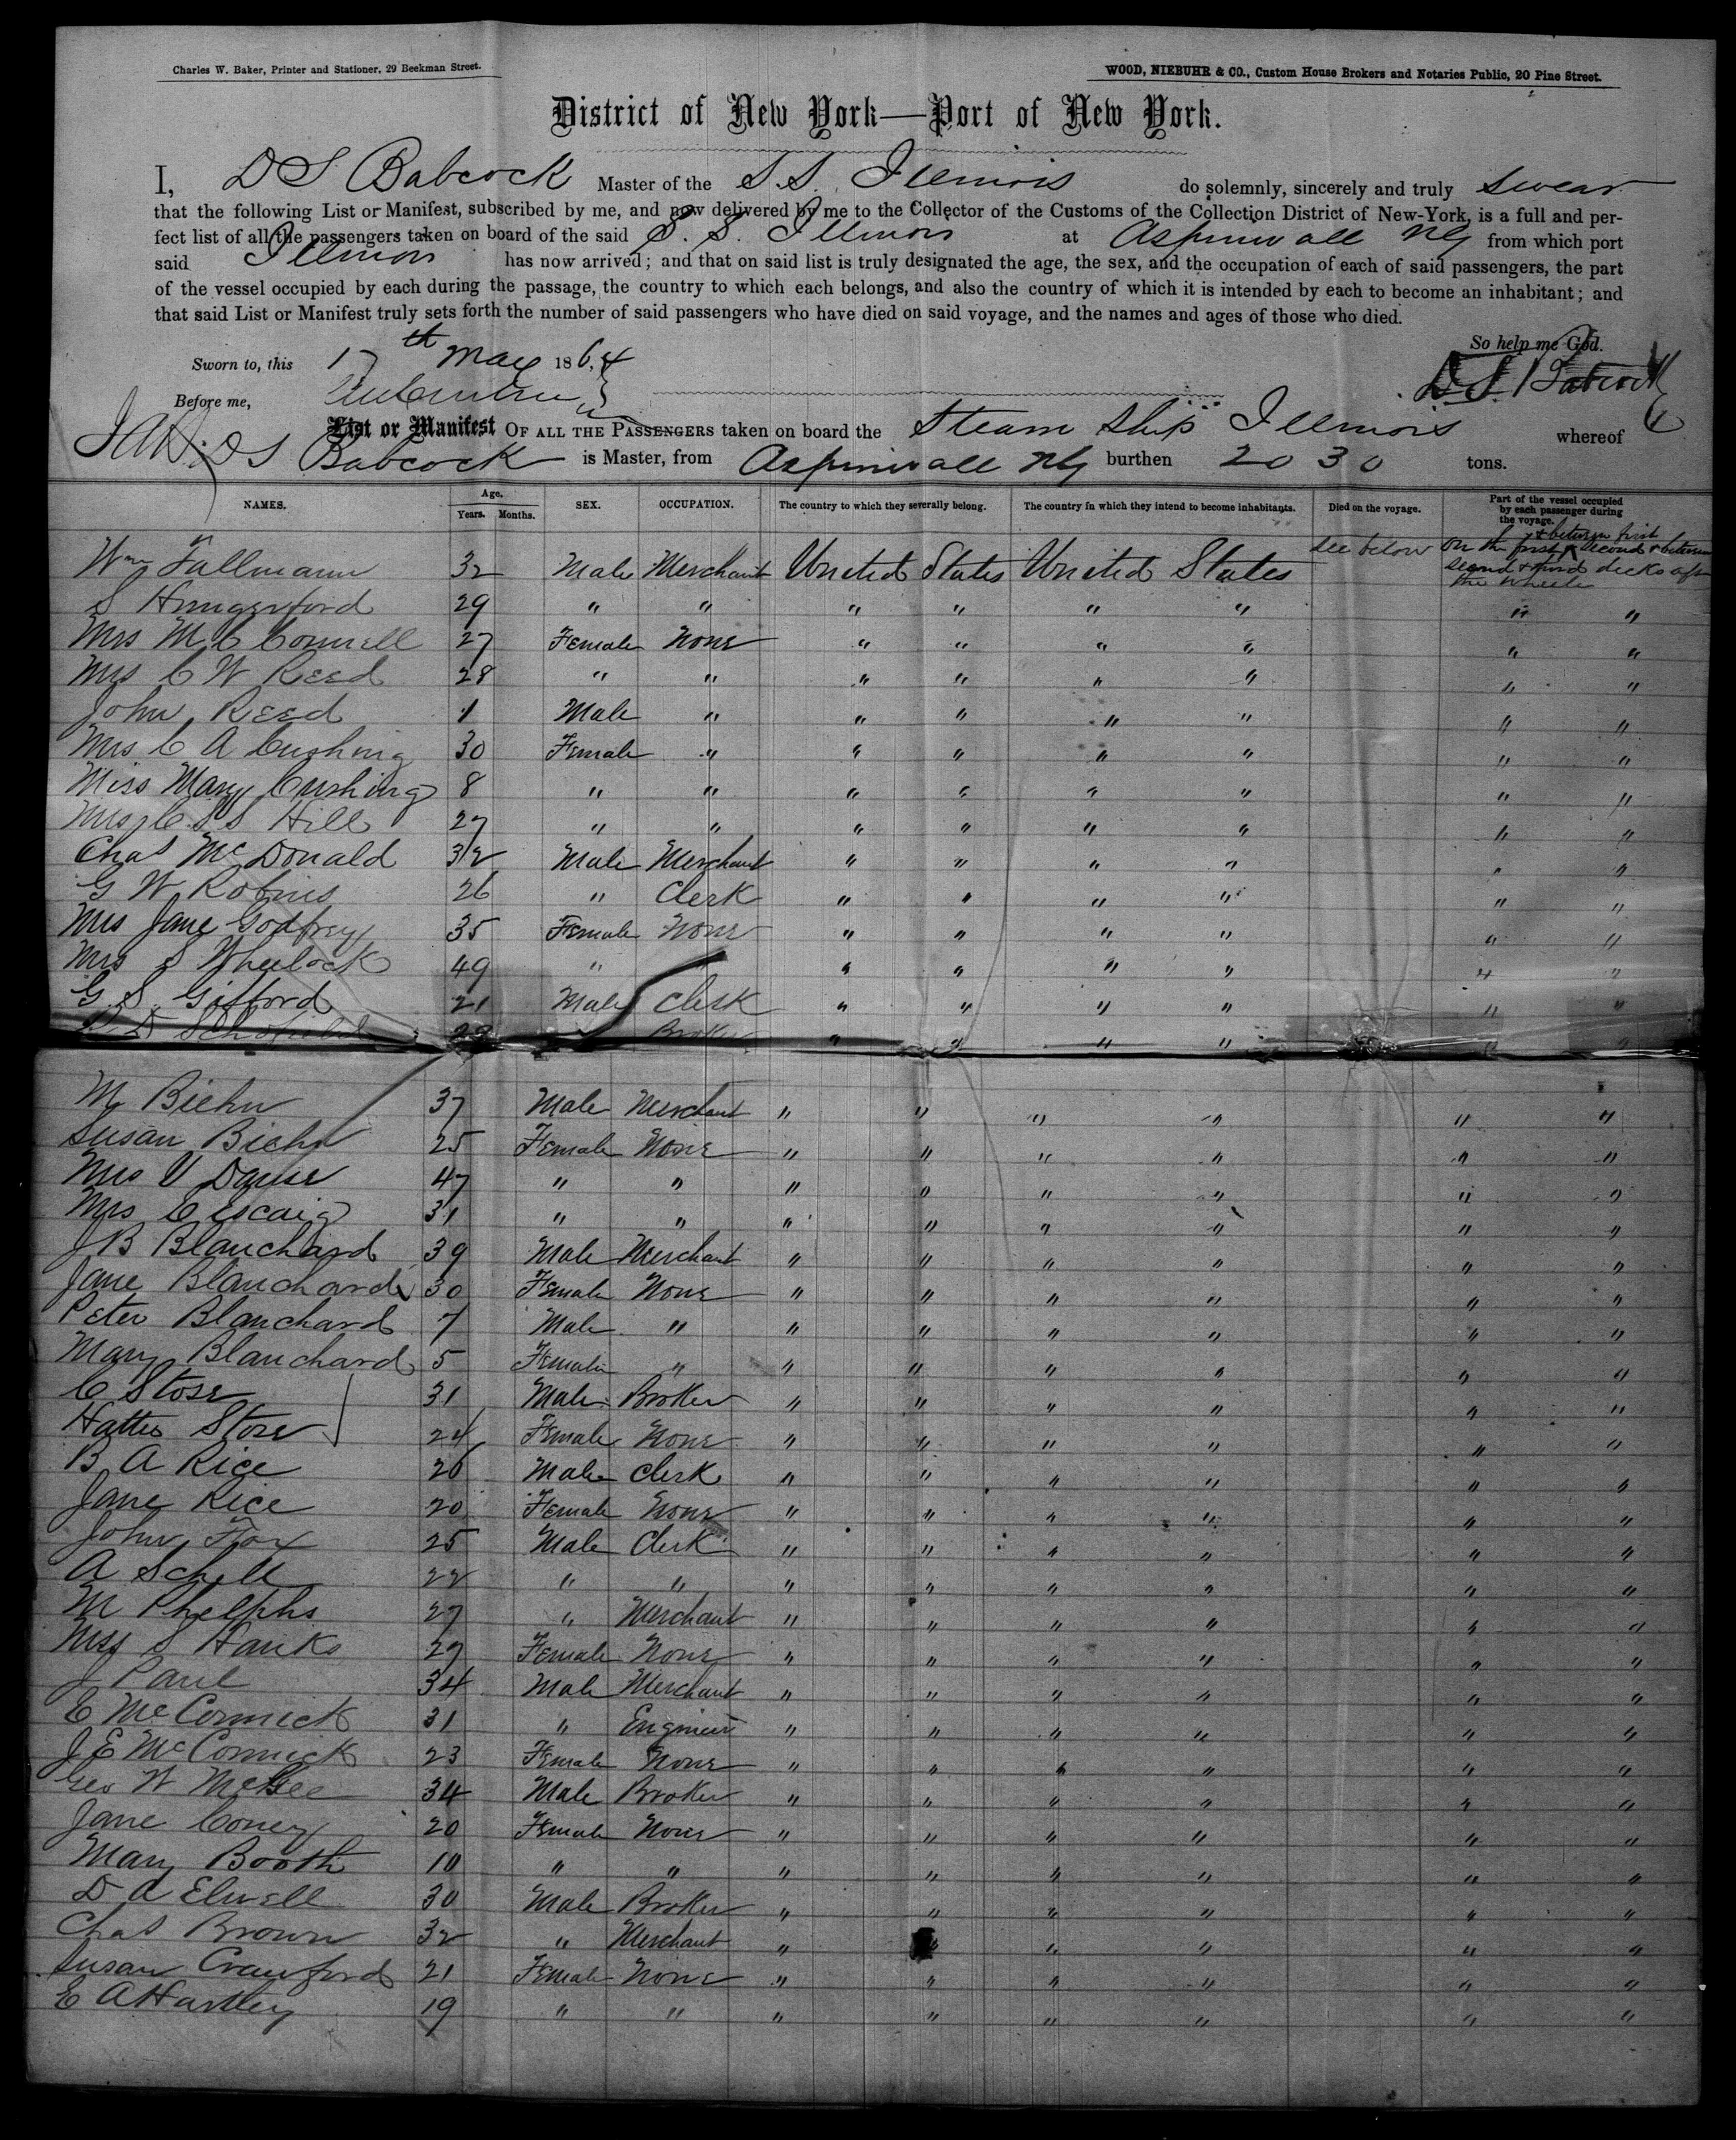 Charles W. Baker, Printer and Stationer, 29 Beekman Street.
WOOD, NIEBUHR & CO., Custom House Brokers and Notaries Public, 20 Pine Street.
District of New York—Port of New York.
I, D S Babcock Master of the S.S. Illinois do solemnly, sincerely and truly swear
that the following List or Manifest, subscribed by me, and now delivered by me to the Collector of the Customs of the Collection District of New-York, is a full and per-
fect list of all the passengers taken on board of the said S. S. Illinois at Aspinwall NG from which port
said Illinois has now arrived; and that on said list is truly designated the age, the sex, and the occupation of each of said passengers, the part
of the vessel occupied by each during the passage, the country to which each belongs, and also the country of which it is intended by each to become an inhabitant; and
that said List or Manifest truly sets forth the number of said passengers who have died on said voyage, and the names and ages of those who died.
So help me God.
Sworn to, this 17th May 1864
D. S. Babcock
Before me,
List or Manifest OF ALL THE PASSENGERS taken on board the Steam Ship Illinois whereof
D S Babcock is Master, from Aspinwall NG burthen 2030 tons.
NAMES. Age. Years. Months. SEX. OCCUPATION. The country to which they severally belong. The country in which they intend to become inhabitants. Died on the voyage. Part of the vessel occupied by each passenger during the voyage.
Wm Fallmann 32 Male Merchant United States United States see below on the first & between first second & between second & third decks aft the wheels
S Hungerford 29 " " " " " " " "
Mrs M C Connell 27 Female None " " " " " "
Mrs C W Reed 28 " " " " " " " "
John Reed 1 Male " " " " " " "
Mrs C A Cushing 30 Female " " " " " " "
Miss Mary Cushing 8 " " " " " " " "
Mrs C. S Hill 27 " " " " " " " "
Chas McDonald 32 Male Merchant " " " " " "
G W Robins 26 " Clerk " " " " " "
Mrs Jane Godfrey 35 Female None " " " " " "
Mrs S Wheelock 49 " " " " " " "
G. S. Gifford 21 Male Clerk " " " " " "
Broker " " " " " "
M Biehn 37 Male Merchant " " " " " "
Susan Biehn 25 Female None " " " " " "
Mrs V Dause 47 " " " " " " " "
Mrs C Escaig 31 " " " " " " " "
J B Blanchard 39 Male Merchant " " " " " "
Jane Blanchard 30 Female None " " " " " "
Peter Blanchard 7 Male " " " " " " "
Mary Blanchard 5 Female " " " " " " "
C Stose 31 Male Broker " " " " " "
Hattie Stose 24 Female None " " " " " "
B A Rice 26 Male Clerk " " " " " "
Jane Rice 20 Female None " " " " " "
John Fox 25 Male Clerk " " " " " "
A Schell 22 " " " " " " " "
M Phelphs 27 " Merchant " " " " " "
Mrs S Hanks 27 Female None " " " " " "
J Paul 34 Male Merchant " " " " " "
E McCormick 31 " Engineer " " " " " "
J E McCormick 23 Female None " " " " " "
Geo W McGee 34 Male Broker " " " " " "
Jane Coney 20 Female None " " " " " "
Mary Booth 10 " " " " " " " "
D A Elwell 30 Male Broker " " " " " "
Chas Brown 32 " Merchant " " " " " "
Susan Crawford 21 Female None " " " " " "
E A Hartley 19 " " " " " " " "